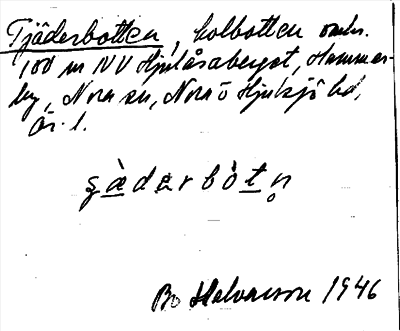 Tjäderbotten, kolbotten omkr.
100 m NV Hjulåsaberget, Hammar-
by, Nora sn, Nora o Hjulsjö bd,
Ör. l.
ʂæ̀dərbòtn̥
Bo Halvarsson 1946